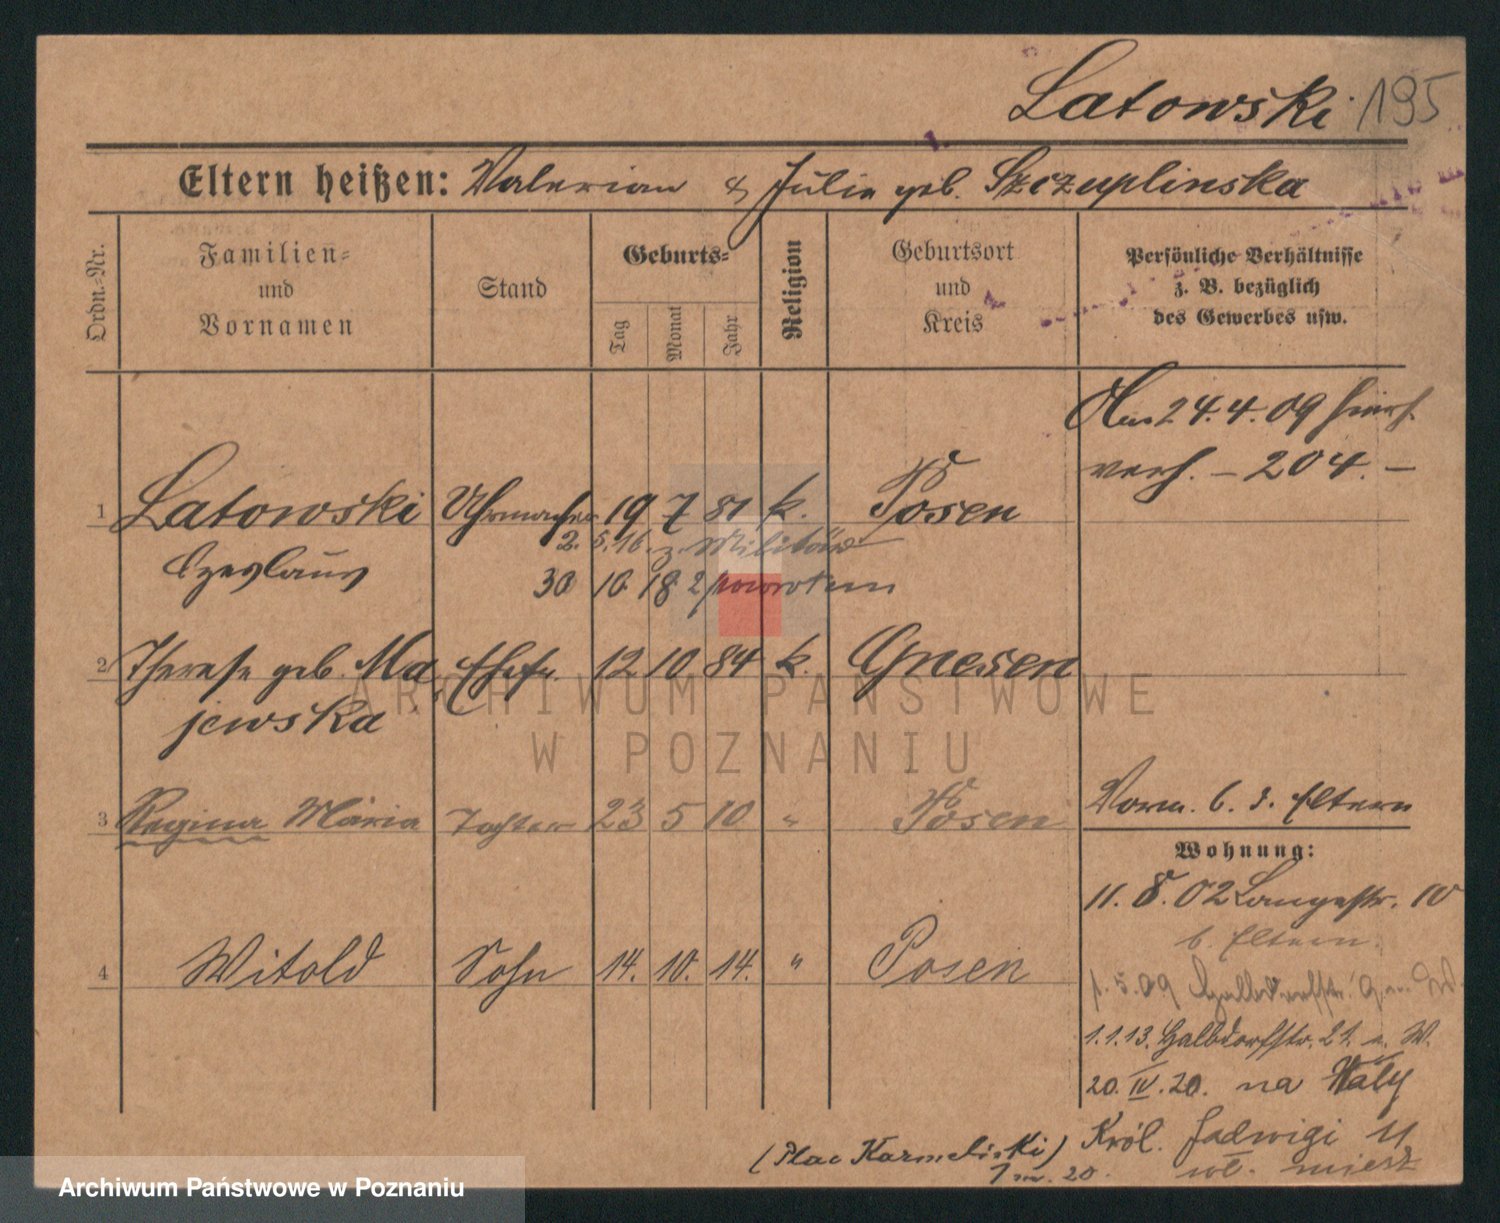 Latowski 195
Eltern heißen: Valerian & Julie geb. Szczuplinska
Ordn.-Nr.
Familien-
und
Vornamen
Stand
Geburts-
Tag
Monat
Jahr
Religion
Geburtsort
und
Kreis
Persönliche Verhältnisse
z. B. bezüglich
des Gewerbes usw.
Am 24.4.09 hiers.
verh. – 204. –
1 Latowski Uhrmacher 19 7 81 k. Posen
2. 5. 16. z. Militär
Czeslaus
30 10 18 z powrotem
2 Therese geb. Ma Ehefr. 12 10 84 k. Gnesen
jewska
3 Regina Maria Tochter 23 5 10 " Posen
Vorm. b. d. Eltern
Wohnung:
11. 8. 02 Langestr. 10
b. Eltern.
4 Witold Sohn 14. 10. 14. " Posen
1. 5. 09 Halbdorfstr. W.
1.1.13. Halbdorfstr. 21. W.
20. IV. 20. na Wały
Król. Jadwigi 11
(Plac Karmelicki)
20. wł. miesz
ARCHIWUM PAŃSTWOWE
W POZNANIU
Archiwum Państwowe w Poznaniu